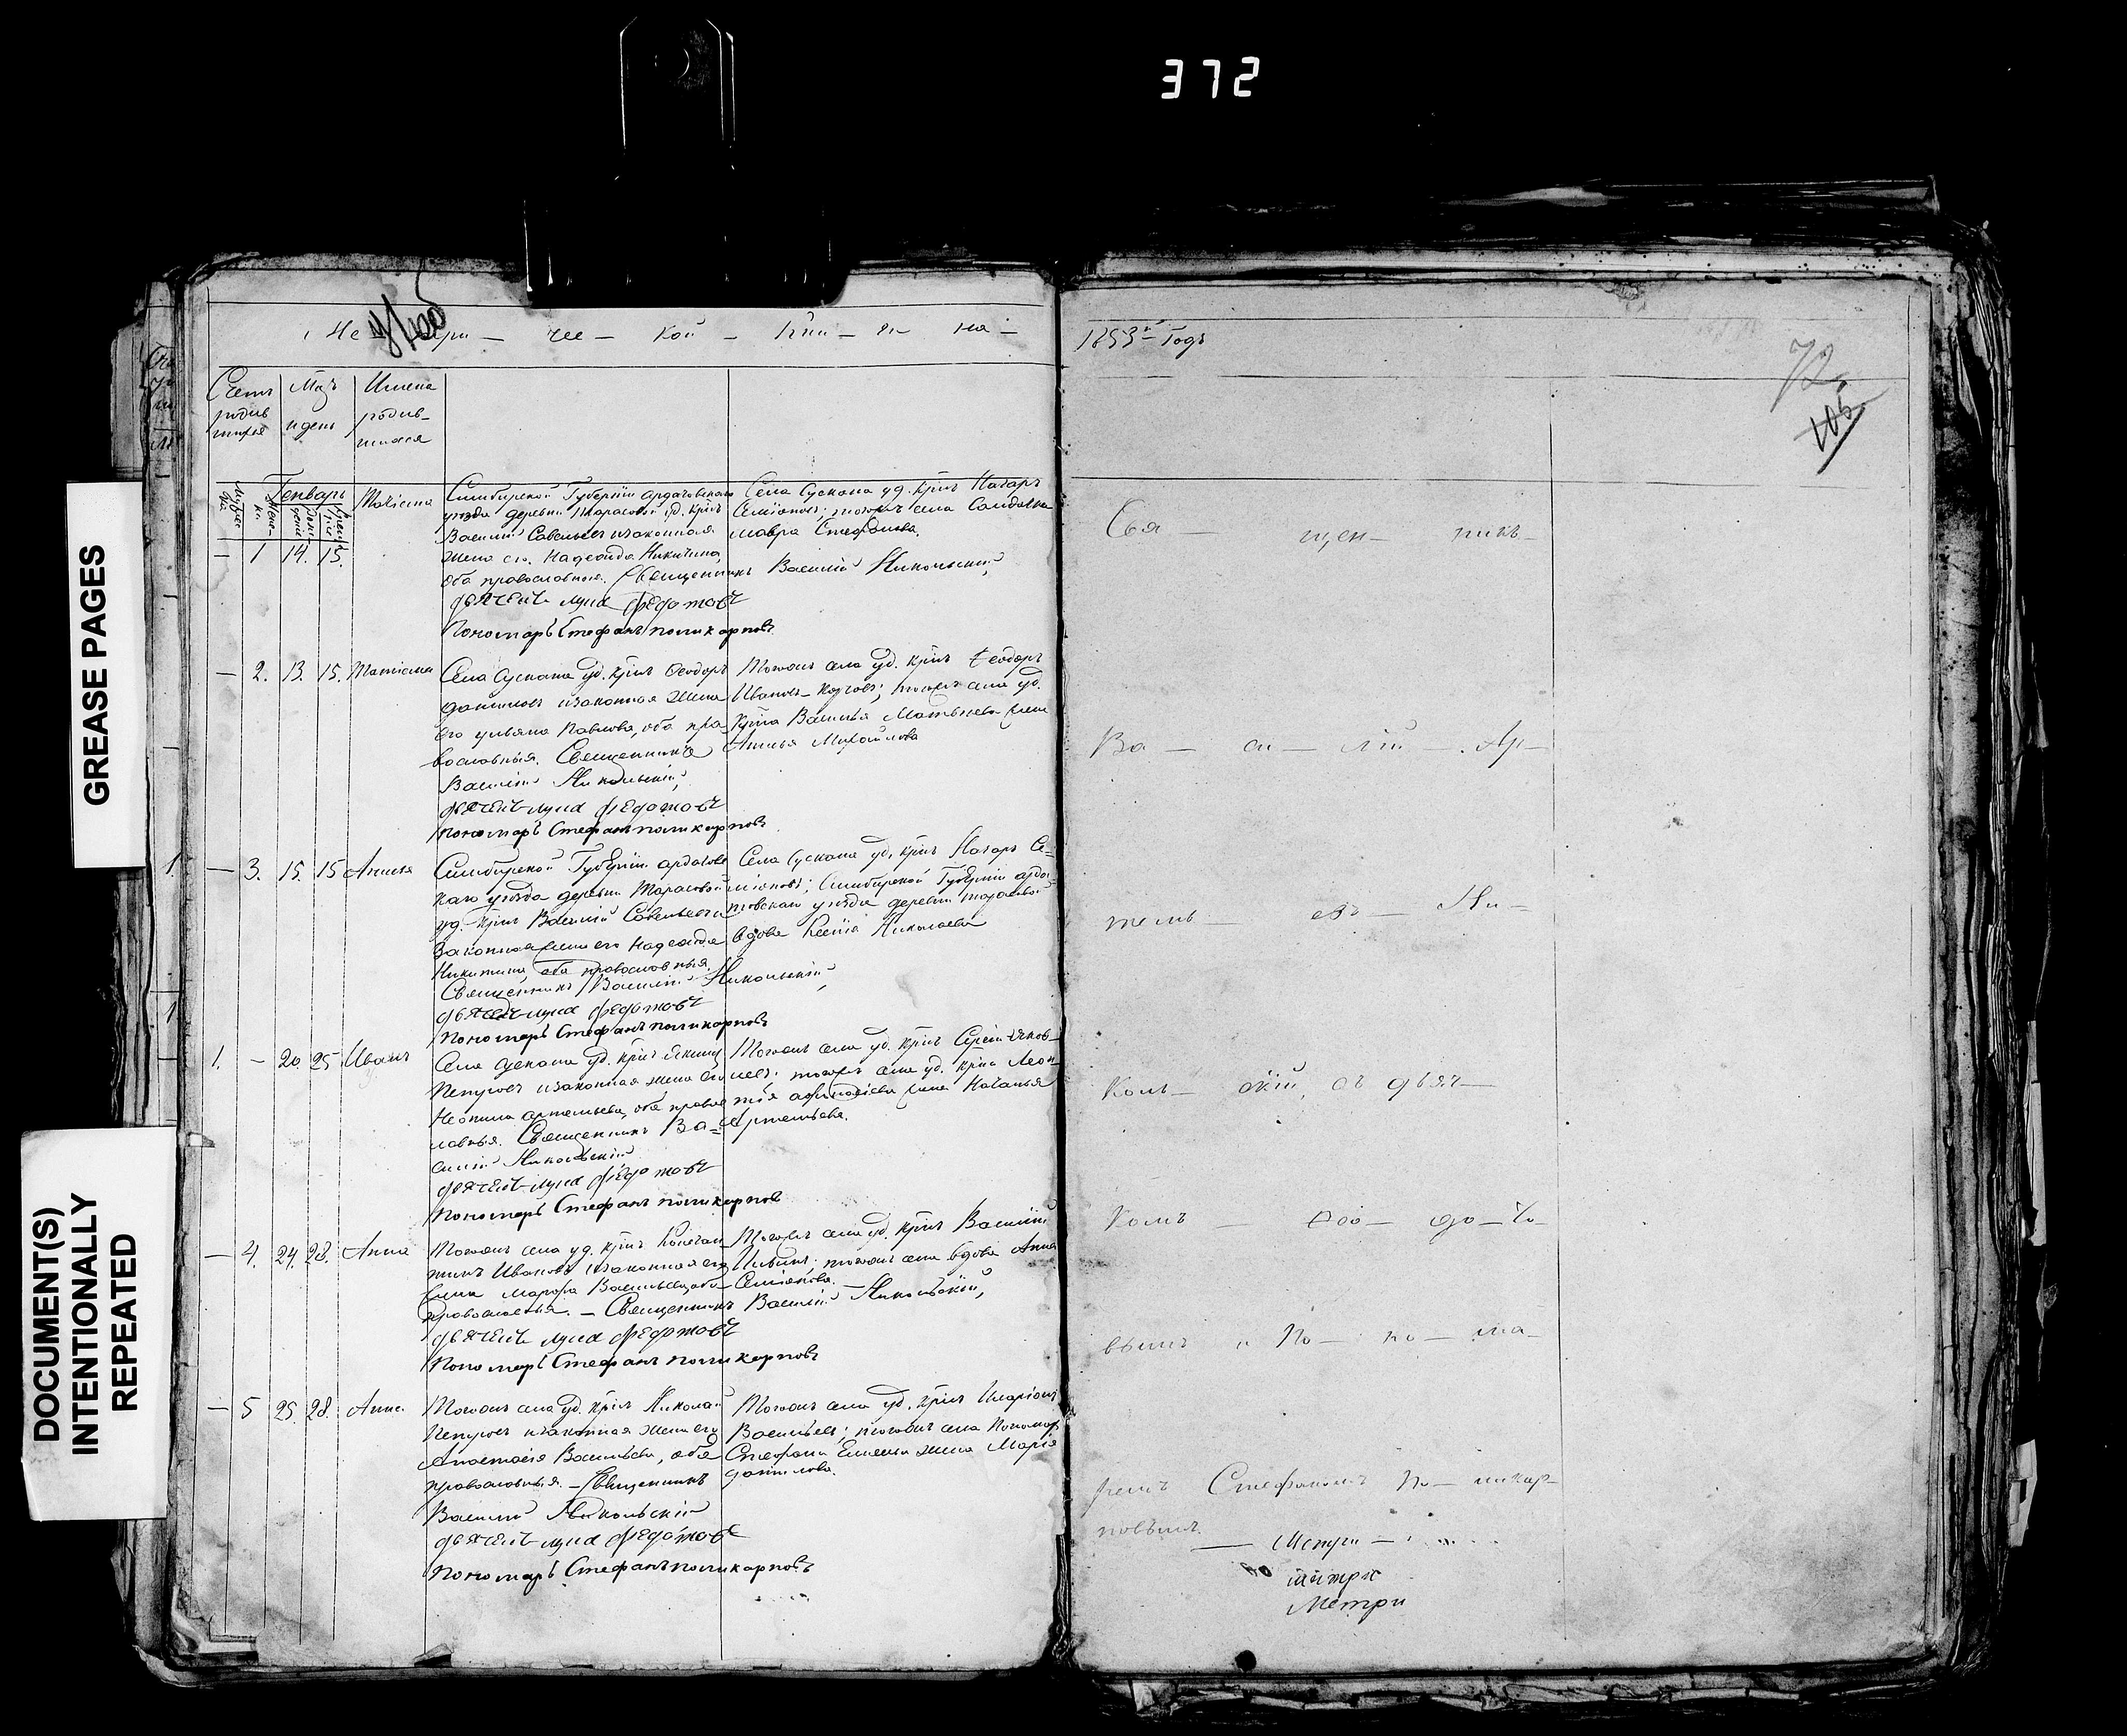 372
GREASE PAGES
DOCUMENT(S)
INTENTIONALLY
REPEATED
кой – кни – ги на –
1853го Годъ
72
105
Счетъ
родив
шихся
Мцъ
и день
Имена
родив–
шихся
Генварь
— 1 14. 15.
Симбирской Губерніи Ардатовскаго
уезда деревни Тарасовой уд. крнъ
Василій Савельевъ и законная
жена его Надежда Никитина,
оба православныя. Священникъ Василій Никольскій,
дьячекъ Лука Федотовъ
Пономарь Стефанъ Поликарповъ
Села Сускана уд. крнъ Назаръ
Семіоновъ; тогожъ села
Мавра Стефанова.
— 2. 13. 15.
Села Сускана уд. крнъ Феодоръ
Даниловъ и законная жена
его Ульяна Павлова, оба пра
вославныя. Священникъ
Василій Никольскій,
дьячекъ Лука Федотовъ
Пономарь Стефанъ Поликарповъ
Тогожъ села уд. крнъ Феодоръ
Ивановъ тогожъ села уд.
крна Василья Матвеева жена
Михайлова
— 3. 15. 15
Симбирской Губерніи Ардатовс
каго уезда деревни Тарасовой
уд. крнъ Василій Савельевъ и
законная жена его Надежда
Никитина, оба православныя.
Священникъ Василій Никольскій,
дьячекъ Лука Федотовъ
Пономарь Стефанъ Поликарповъ
Села Сускана уд. крнъ Назаръ Се–
міоновъ; Симбирской Губерніи Арда–
товскаго уезда деревни Тарасовой
вдова Ксенія Николаева
1. — 20. 25 Иванъ
Села Сускана уд. крнъ
Петровъ и законная жена его
Неонила Артемьева, оба правос
лавныя. Священникъ Ва=
силій Никольскій
дьячекъ Лука Федотовъ
Пономарь Стефанъ Поликарповъ
Тогожъ села уд. крнъ Сергій
тогожъ села уд. крна Леон
тія жена Наталья
Артемьева.
— 4. 24. 28. Анна
Тогожъ села уд. крнъ Констан
тинъ Ивановъ и законная его
жена Марфа Васильева, оба
православныя. – Священникъ Василій Никольскій,
дьячекъ Лука Федотовъ
Пономарь Стефанъ Поликарповъ
Тогожъ села уд. крнъ Василій
тогожъ села вдова Анна
Семіонова. –
— 5 25. 28. Анна
Тогожъ села уд. крнъ Николай
Петровъ и законная жена его
Анастасія Васильева, оба
православныя. – Священникъ
Василій Никольскій
дьячекъ Лука Федотовъ
Пономарь Стефанъ Поликарповъ
Тогожъ села уд. крнъ Иларіонъ
Васильевъ; тогожъ села Пономар
Стефана жена Марія
Данилова.
Свя – щен – никъ –
Ва – си – лій – Ар –
темь – евъ – Ни –
коль – скій, съ дьяч –
комъ – Фео – до – то –
вымъ и По – но – ма –
ремъ Стефаномъ По – ликар –
повымъ.
Метри
Метри